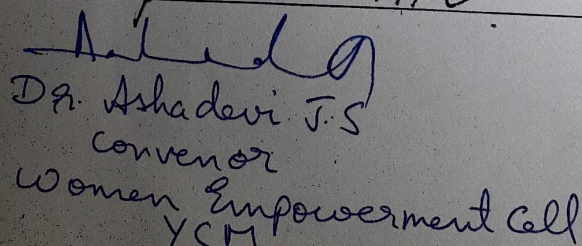 Dr. Ashadevi J.S
convenor
women Empowerment Cell
YCM